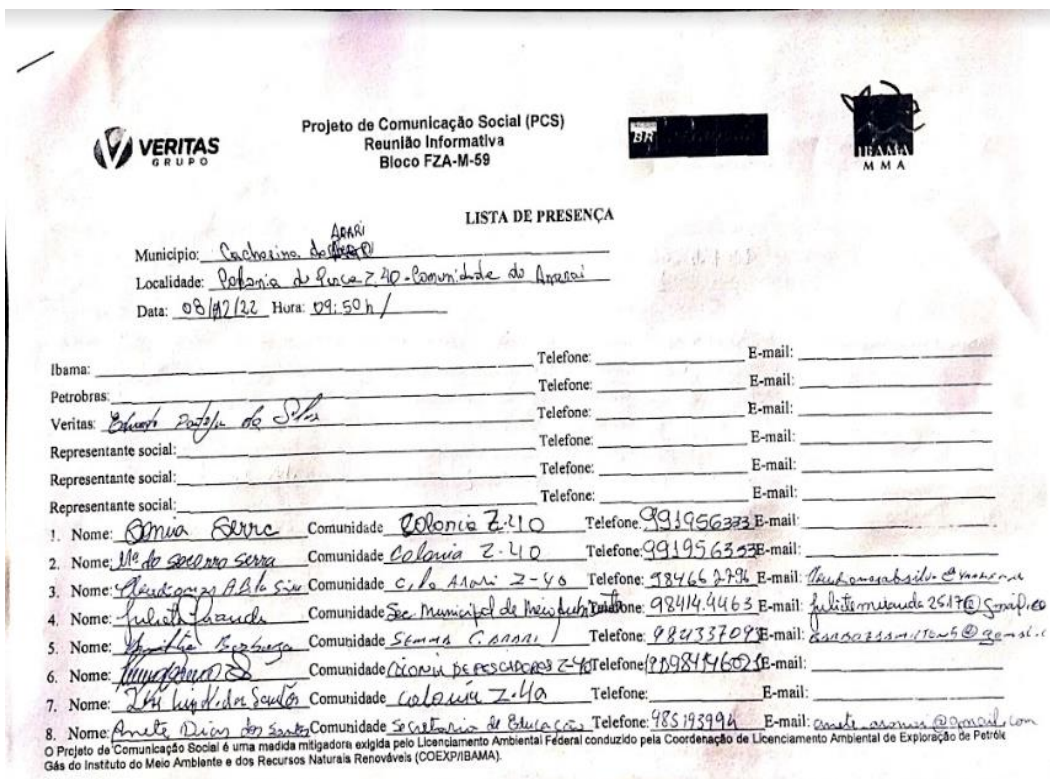 VERITAS
GRUPO
Projeto de Comunicação Social (PCS)
Reunião Informativa
Bloco FZA-M-59
BR
IBAMA
M M A
LISTA DE PRESENÇA
ARARI
Município: Cachoeira do
Localidade: Colonia de Pesca Z.40 - Comunidade do Ararai
Data: 08/12/22 Hora: 09:50h /
Ibama: Telefone: E-mail:
Petrobras: Telefone: E-mail:
Veritas: da Silva Telefone: E-mail:
Representante social: Telefone: E-mail:
Representante social: Telefone: E-mail:
Representante social: Telefone: E-mail:
1. Nome: Serra Comunidade Colonia Z-40 Telefone: 991956333 E-mail:
2. Nome: Mª do socorro serra Comunidade Colonia Z-40 Telefone: 991956333 E-mail:
3. Nome: Comunidade Arari Z-40 Telefone: 98466 2796 E-mail:
4. Nome: Comunidade Sec Municipal de Meio Telefone: 98414.4463 E-mail:
5. Nome: Comunidade SEMMA C. ARARI Telefone: E-mail:
6. Nome: Comunidade COLONIA DE PESCADORES Z-40 Telefone: E-mail:
7. Nome: dos Santos Comunidade Colonia Z-40 Telefone: E-mail:
8. Nome: Anete Dias dos Santos Comunidade Secretaria de Educação Telefone: 985193994 E-mail:
O Projeto de Comunicação Social é uma medida mitigadora exigida pelo Licenciamento Ambiental Federal conduzido pela Coordenação de Licenciamento Ambiental de Exploração de Petróle
Gás do Instituto do Meio Ambiente e dos Recursos Naturais Renováveis (COEXP/IBAMA).